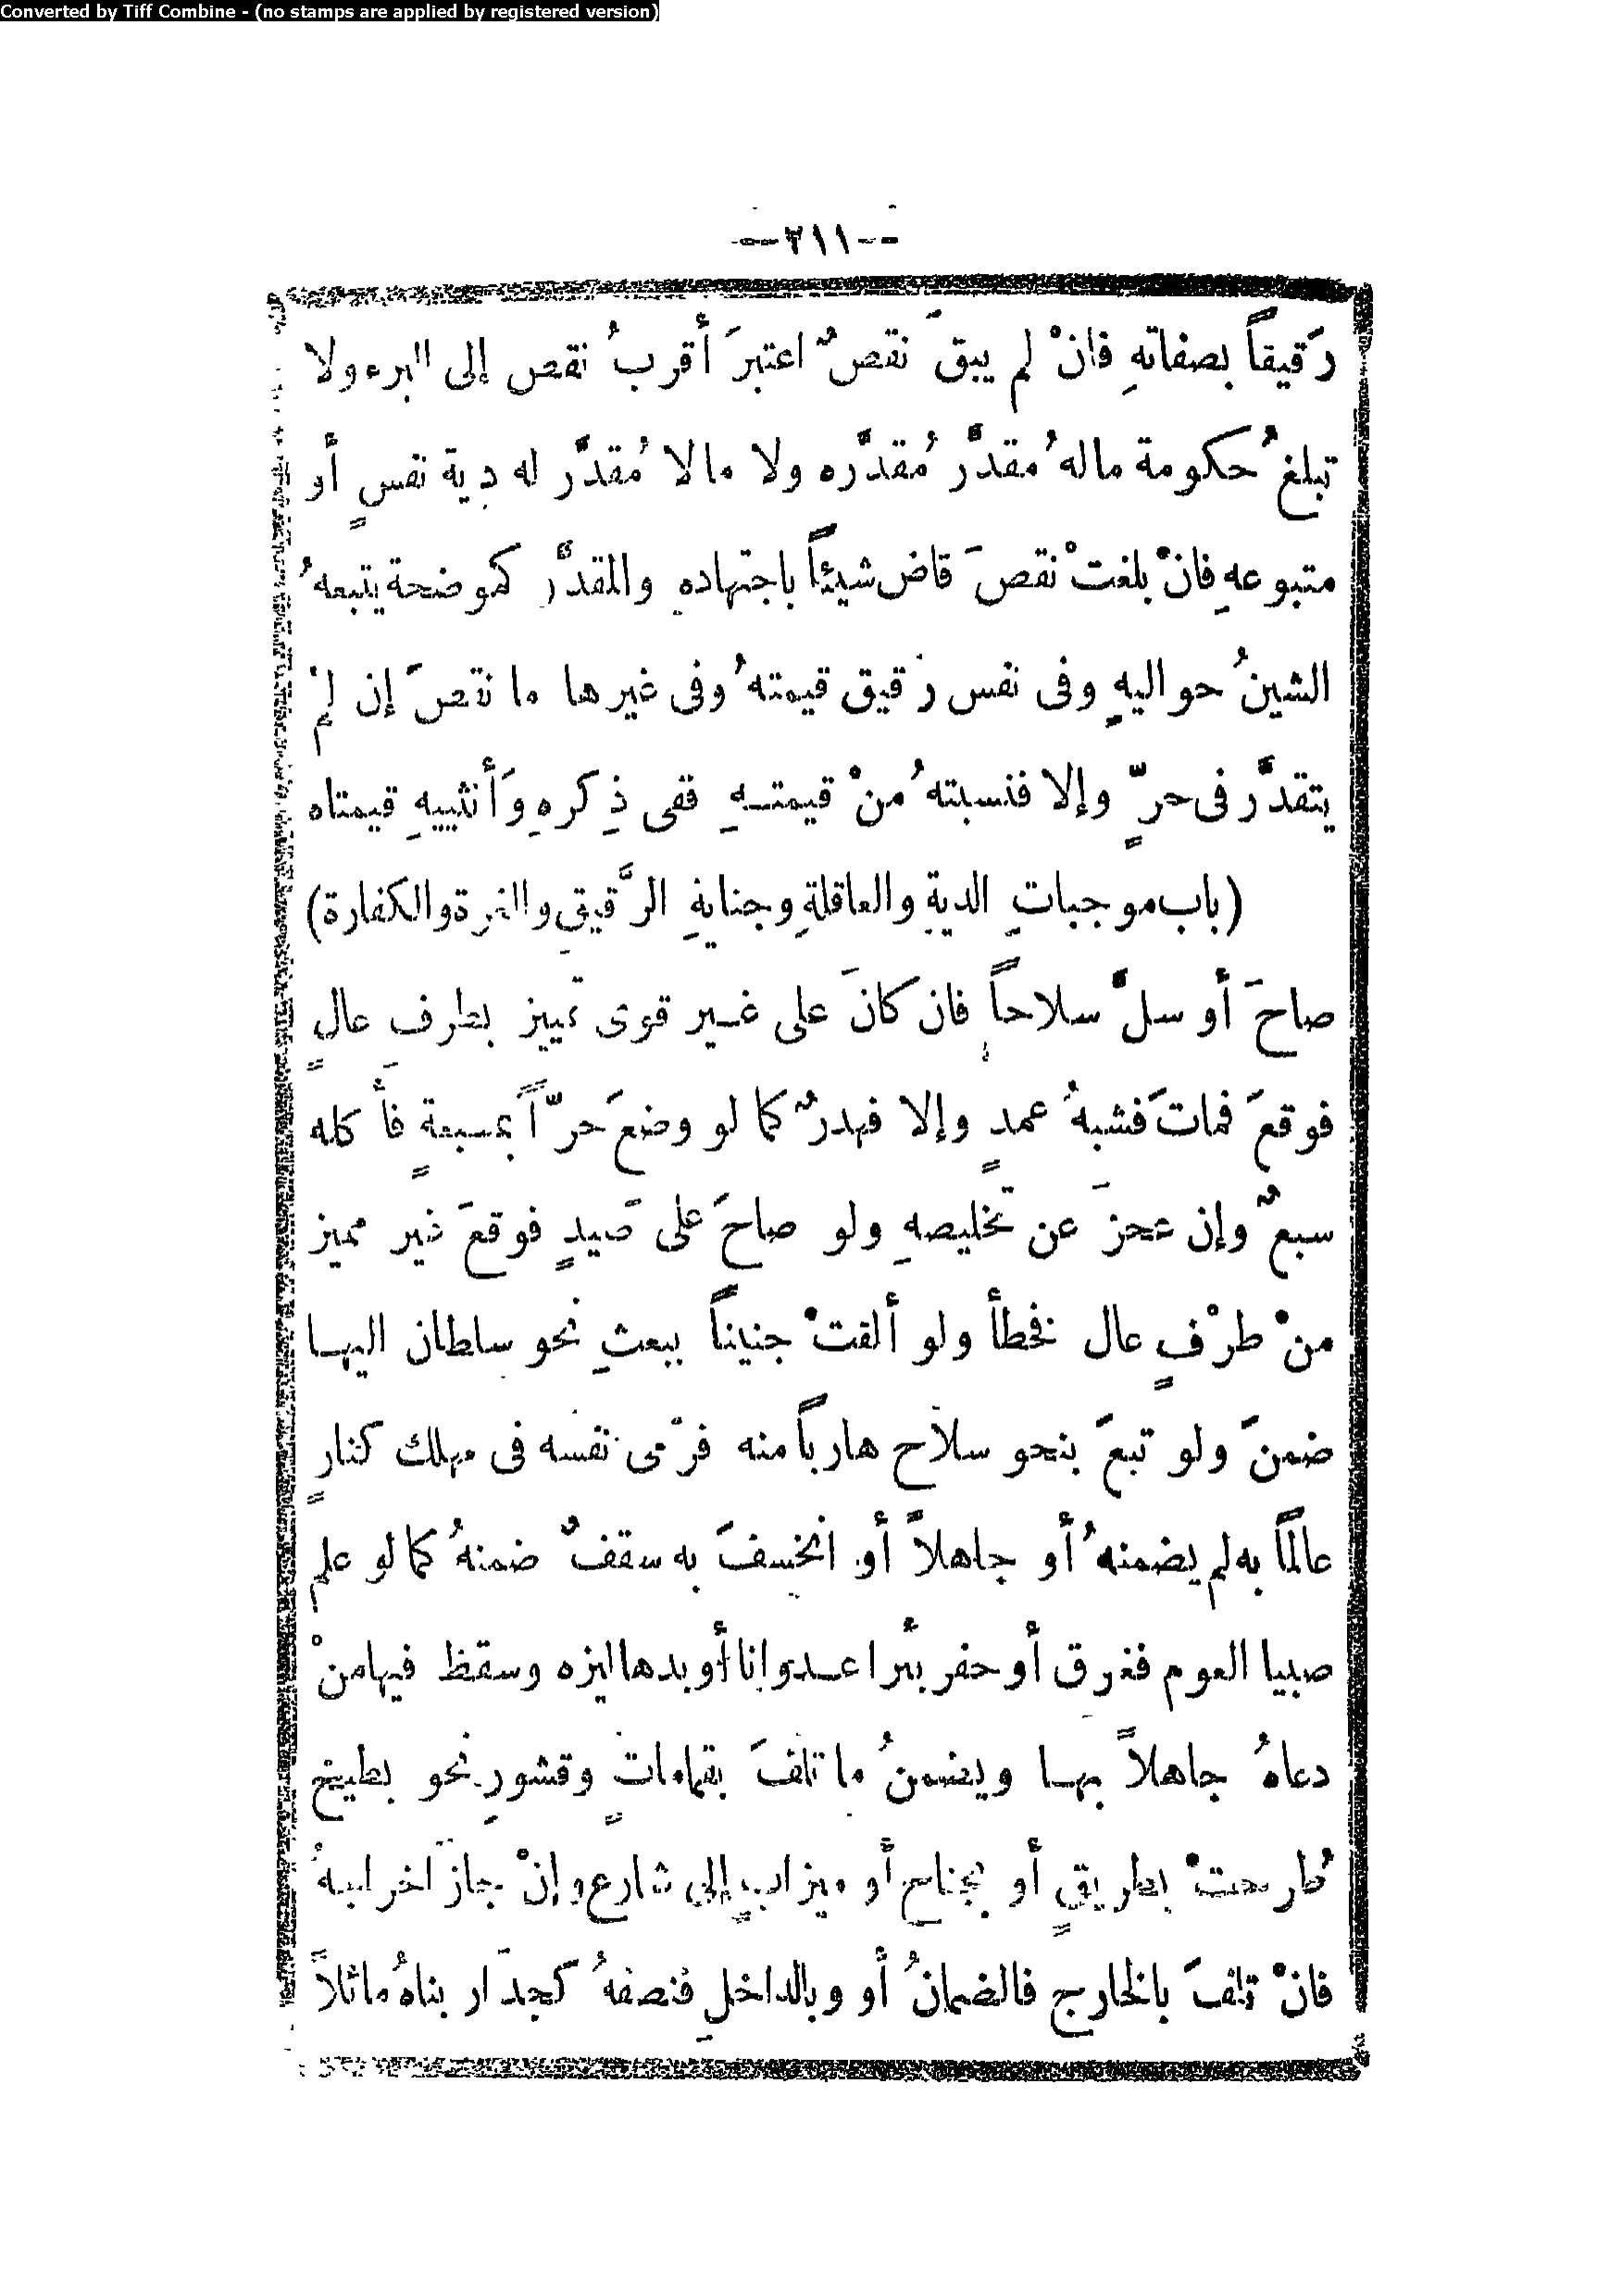 Converted by Tiff Combine - (no stamps are applied by registered version)
—٢١١—
رَقيقاً بصفاتهِ فانْ لم يبقَ نقصٌ اعتبرَ أقربُ نقص إلى البرء ولا
تبلغُ حكومة مالهُ مُقدَّر مُقدَّره ولا مالا مُقدَّر له دية نفسٍ أو
متبوعهِ فانْ بلغتْ نقصَ قاض شيئاً باجتهادهِ والمقدَّر كموضحة يتبعهُ
الشينُ حواليهِ وفى نفس رَقيق قيمتهُ وفى غيرها ما نقصَ إن لمْ
يتقدَّر فى حرٍّ وإلا فنسبتهُ منْ قيمتهِ ففى ذِكرهِ وَأنثييهِ قيمتاه
(باب موجبات الديةِ والعاقلةِ وجنايةِ الرَّقيقِ والغرة والكفارة)
صاحَ أو سلَّ سلاحاً فان كانَ على غير قوى تمييز بطرف عالٍ
فوقعَ فماتَ فشبهُ عمدٍ وإلا فهدرٌ كما لو وضعَ حرّاً بمسبعةٍ فأكله
سبعٌ وإن عجزَ عن تخليصهِ ولو صاحَ على صَيدٍ فوقعَ غير مميز
منْ طرْفٍ عال فخطأ ولو ألقتْ جنيناً ببعثِ نحو سلطان اليها
ضمنَ ولو تبعَ بنحو سلاح هارباً منه فرَمى نفسه فى مهلك كنارٍ
عالماً به لم يضمنهُ أو جاهلاً أو انخسفَ به سقفٌ ضمنهُ كما لو علم
صبيا العوم فغرق أو حفر بئرا عدوانا أو بدهاليزه وسقط فيها منْ
دعاهُ جاهلاً بها ويضمنُ ما تلفَ بقماماتٍ وقشورِ نحو بطيخ
طُرحتْ بطريقٍ أو بجناح أو ميزابٍ إلى شارع وإنْ جازَ اخراجهُ
فانْ تلفَ بالخارج فالضمانُ أو وبالداخلِ فنصفهُ كجدَار بناهُ مائلاً